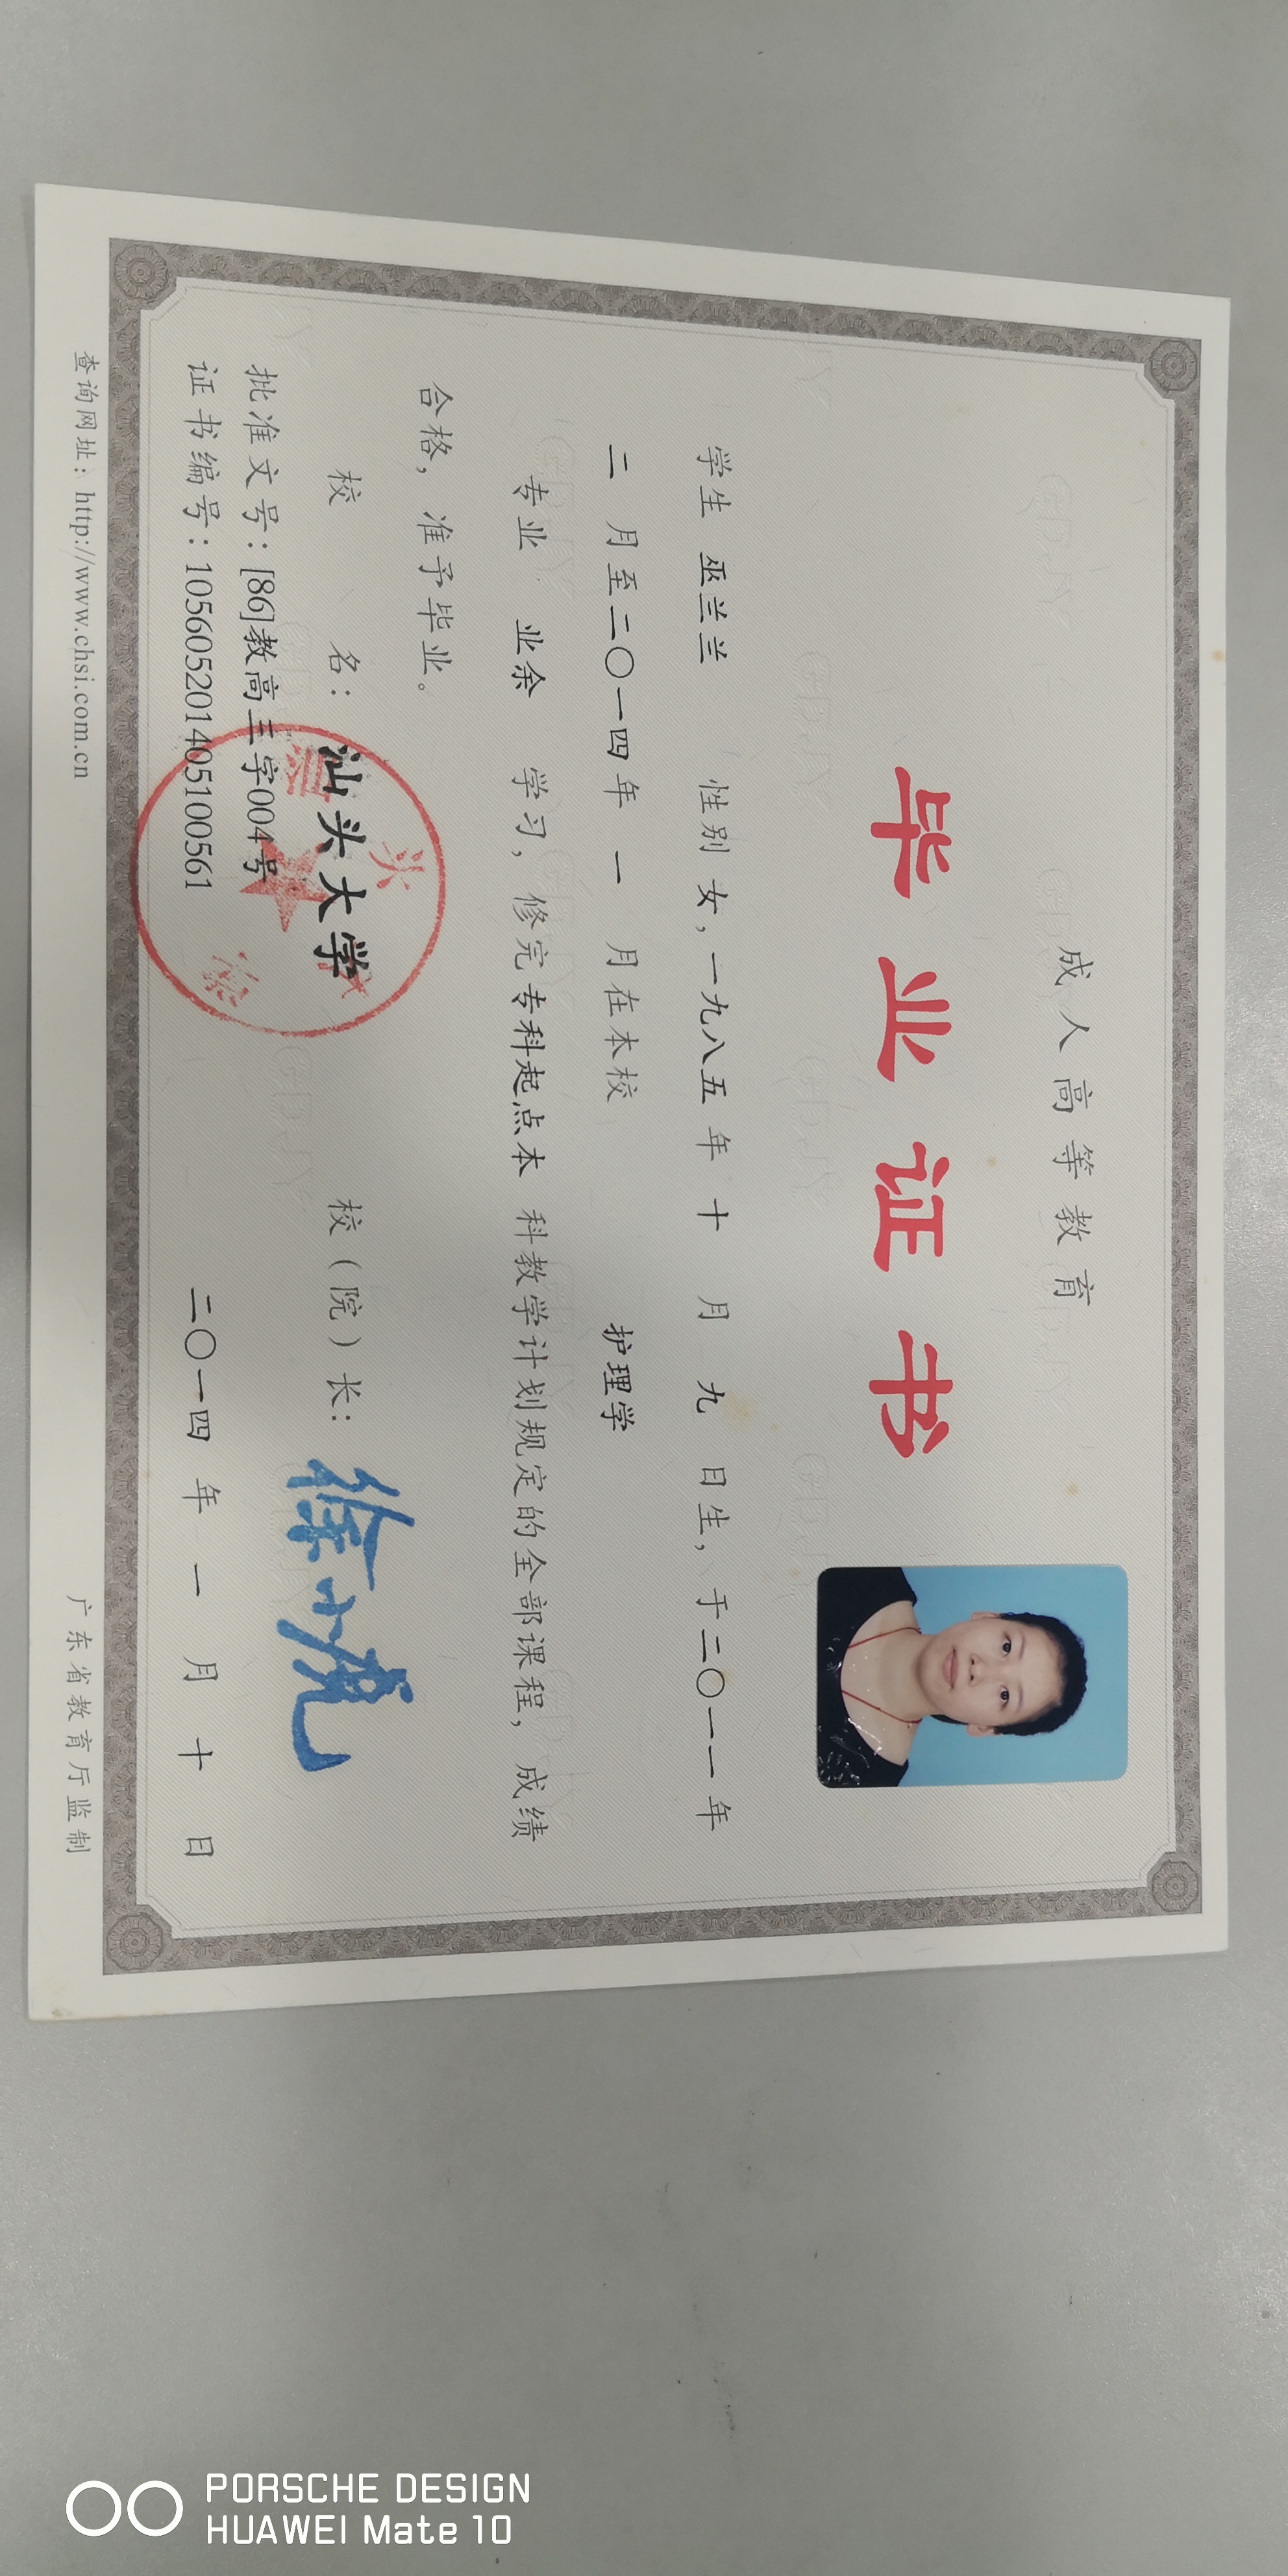 成人高等教育
毕业证书
学生 巫兰兰 性别 女，一九八五 年 十 月 九 日生，于二〇一一年
二 月至二〇一四年 一 月在本校 护理学
专业 业余 学习，修完专科起点本 科教学计划规定的全部课程，成绩
合格，准予毕业。
校 名：汕头大学 校（院）长：徐小虎
批准文号：[86]教高三字004号
证书编号：105605201405100561 二〇一四 年 一 月 十 日
查询网址：http://www.chsi.com.cn 广东省教育厅监制
PORSCHE DESIGN
HUAWEI Mate 10